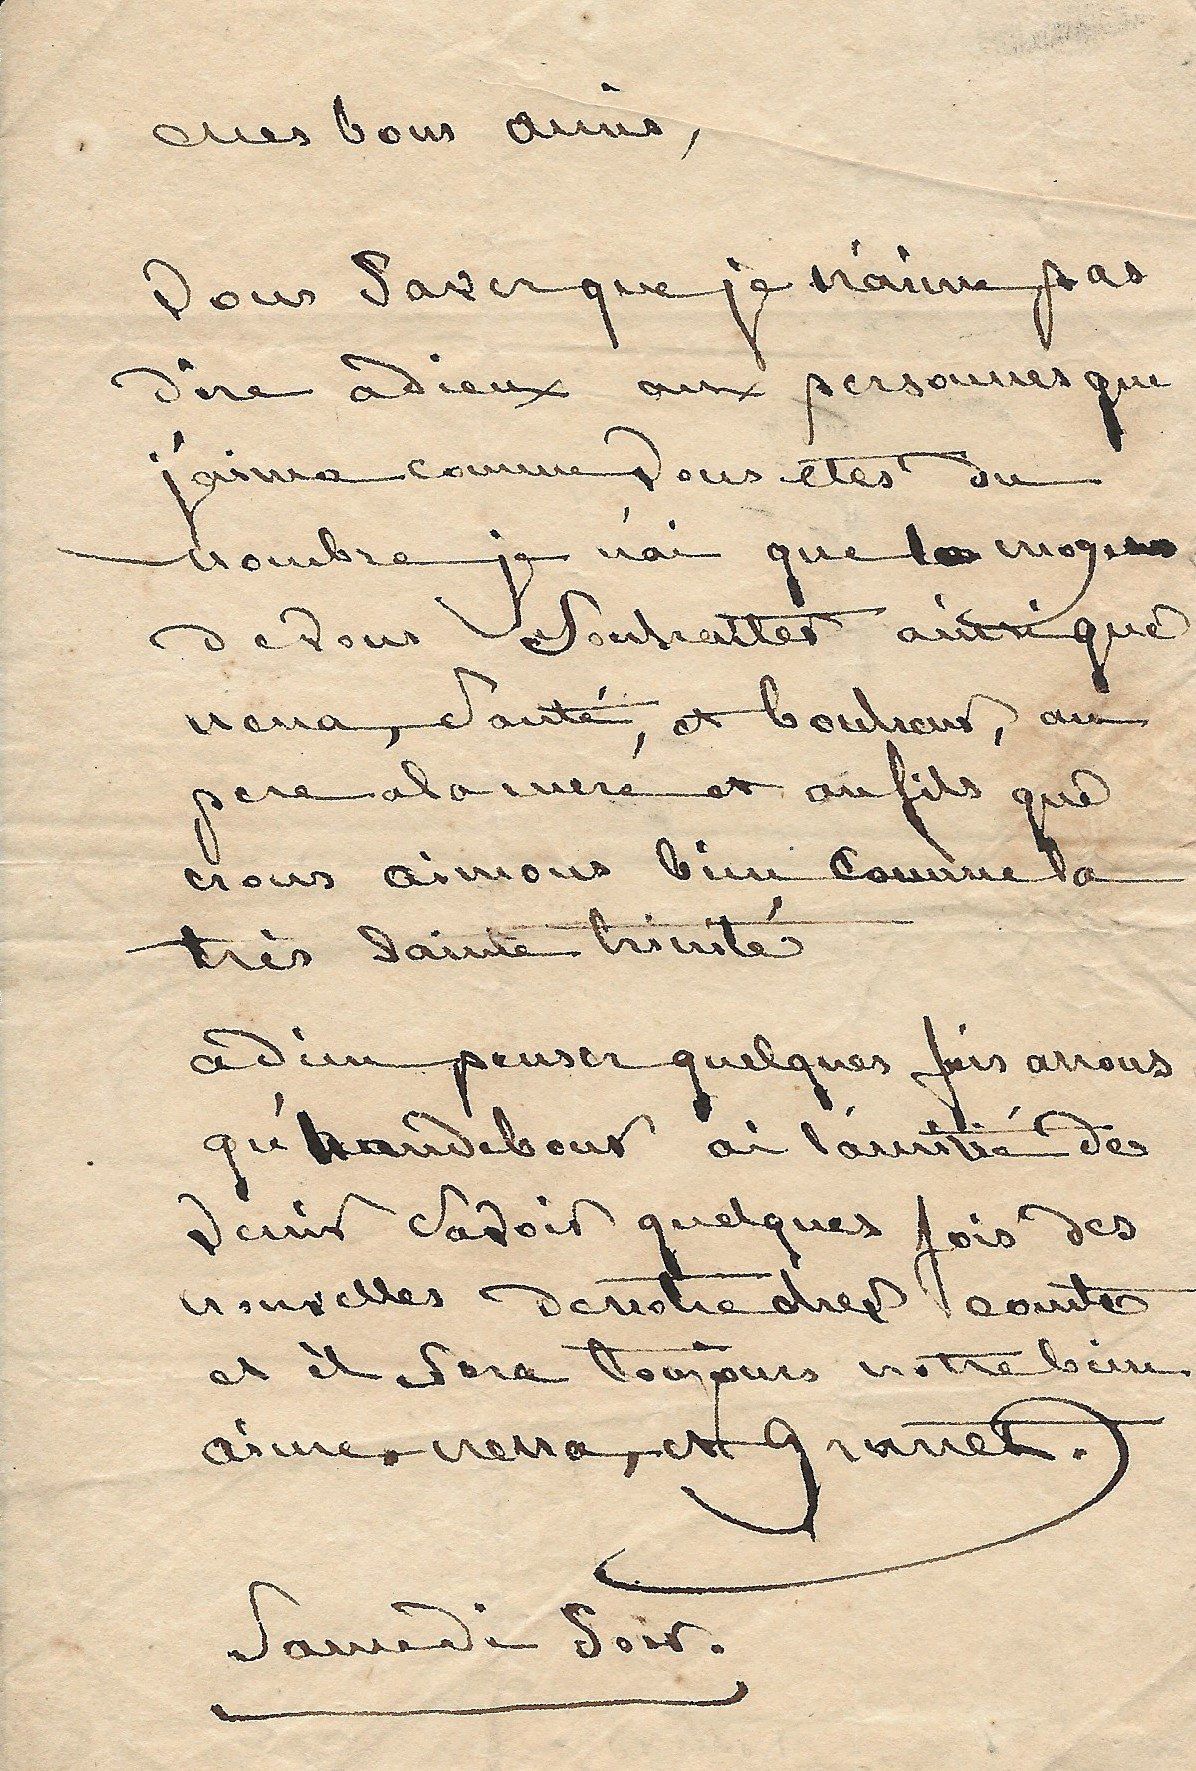 mes bons amis,
Vous Saver que je n'aime pas
dire âdieux aux personnes que
j'aime comme Vous etes du
nombre je n'ai que le moyen
de Vous Souhaitter ainsi que
nena, Santé, et bonheur, au
pere a la mere et au fils que
nous aimons bien Comme la
très Sainte trinité
âdieu penser quelques fois a nous
qu'haudebour ai l'amitié de
Venir Savoir quelques fois des
nouvelles de notre cher comte
et il Sera toujours notre bien
aimé, nena, et Granet.
Samedi Soir.